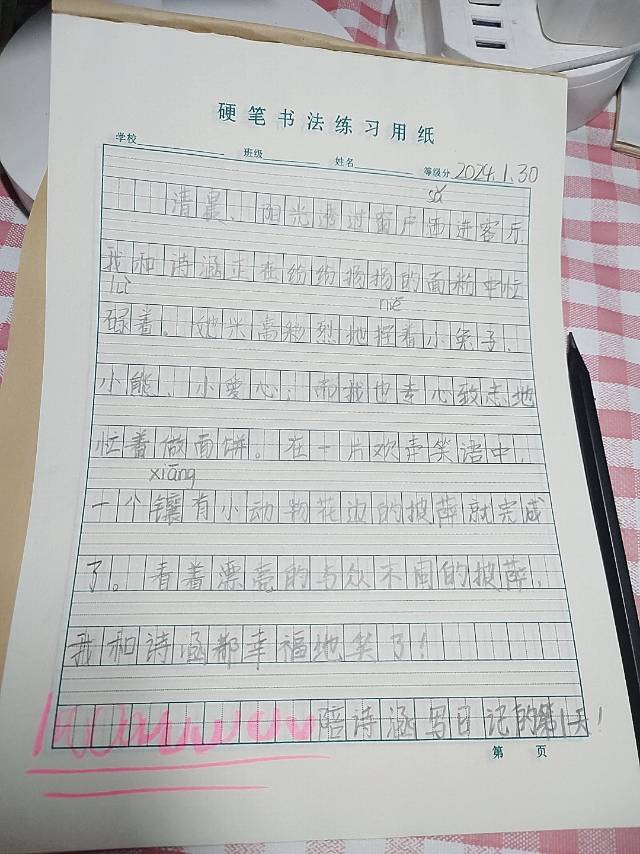 硬笔书法练习用纸
学校 班级 姓名 等级分 2024.1.30
sǎ
清晨、阳光透过窗户洒进客厅,
我和诗涵正在纷纷扬扬的面粉中忙
lù niē
碌着。她兴高彩烈地捏着小兔子、
小熊、小爱心;而我也专心致志地
忙着做面饼。在一片欢声笑语中,
xiāng
一个镶有小动物花边的披萨就完成
了。看着漂亮的与众不同的披萨,
我和诗涵都幸福地笑了!
陪诗涵写日记的第1天!
第 页